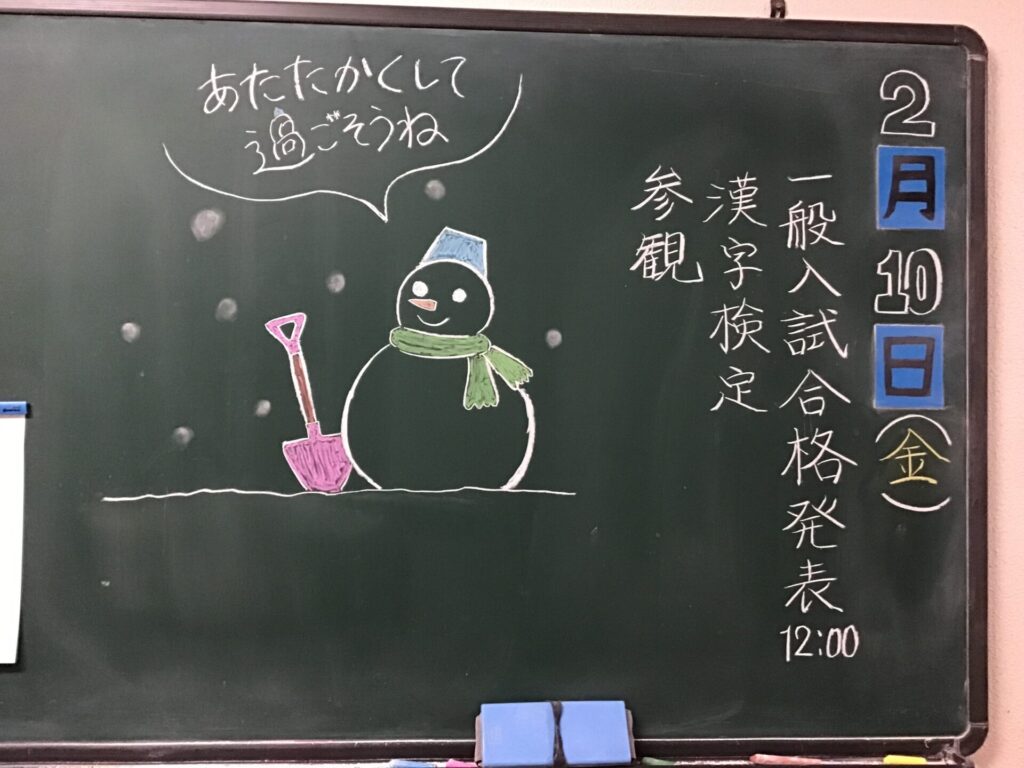 2月10日(金)
一般入試合格発表12:00
漢字検定
参観
あたたかくして
過ごそうね